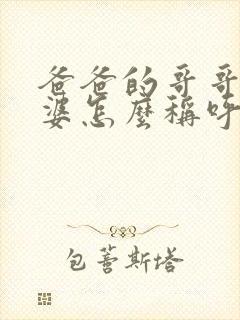 爸爸的哥哥
婆怎麼稱呼
包薈斯塔